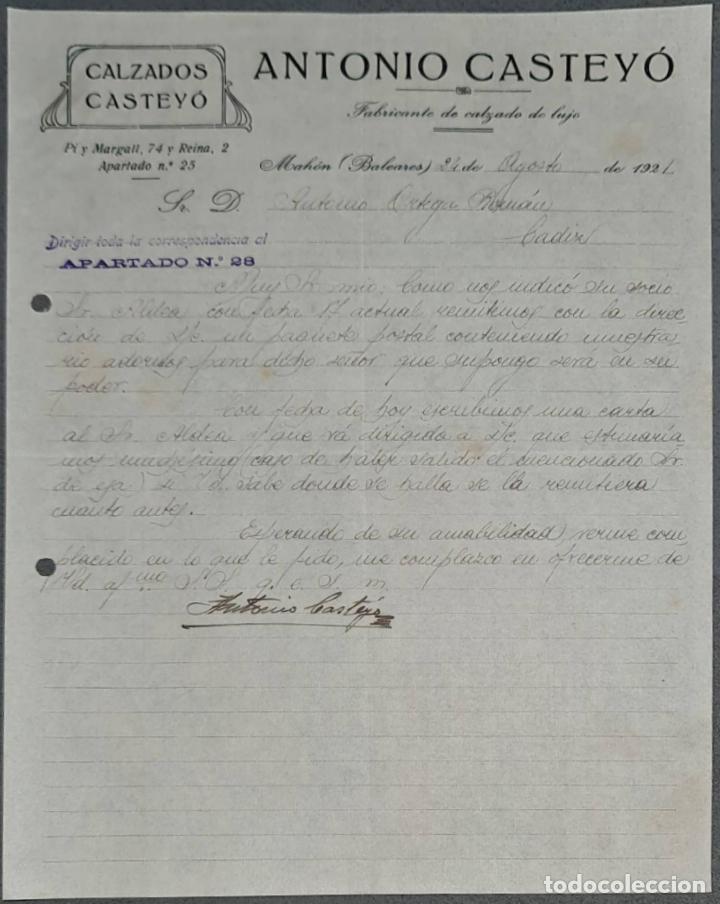 CALZADOS
CASTEYÓ
ANTONIO CASTEYÓ
Fabricante de calzado de lujo
Pí y Margall, 74 y Reina, 2
Apartado n.º 25
Mahón (Baleares) 24 de Agosto de 1921
Sr. D. Antonio Ortega Román
Cadiz
Dirigir toda la correspondencia al
APARTADO N.º 28
Muy Sr. mio: Como nos indicó su socio
Sr. Aldea con fecha 17 actual remitimos con la direc-
ción de V/c. un paquete postal conteniendo muestra
rio adornos para dicho señor que supongo será en su
poder.
Con fecha de hoy escribimos una carta
al Sr. Aldea y que vá dirigido a V/c. que estimaria
mos muchisimo (caso de haber salido el mencionado Sr.
de esa) si Vd. sabe donde se halla se la remitiera
cuanto antes.
Esperando de su amabilidad, verme com
placido en lo que le pido, me complazco en ofrecerme de
Vd. af mo S. S. q. e. s. m.
Antonio Casteyó
todocoleccion